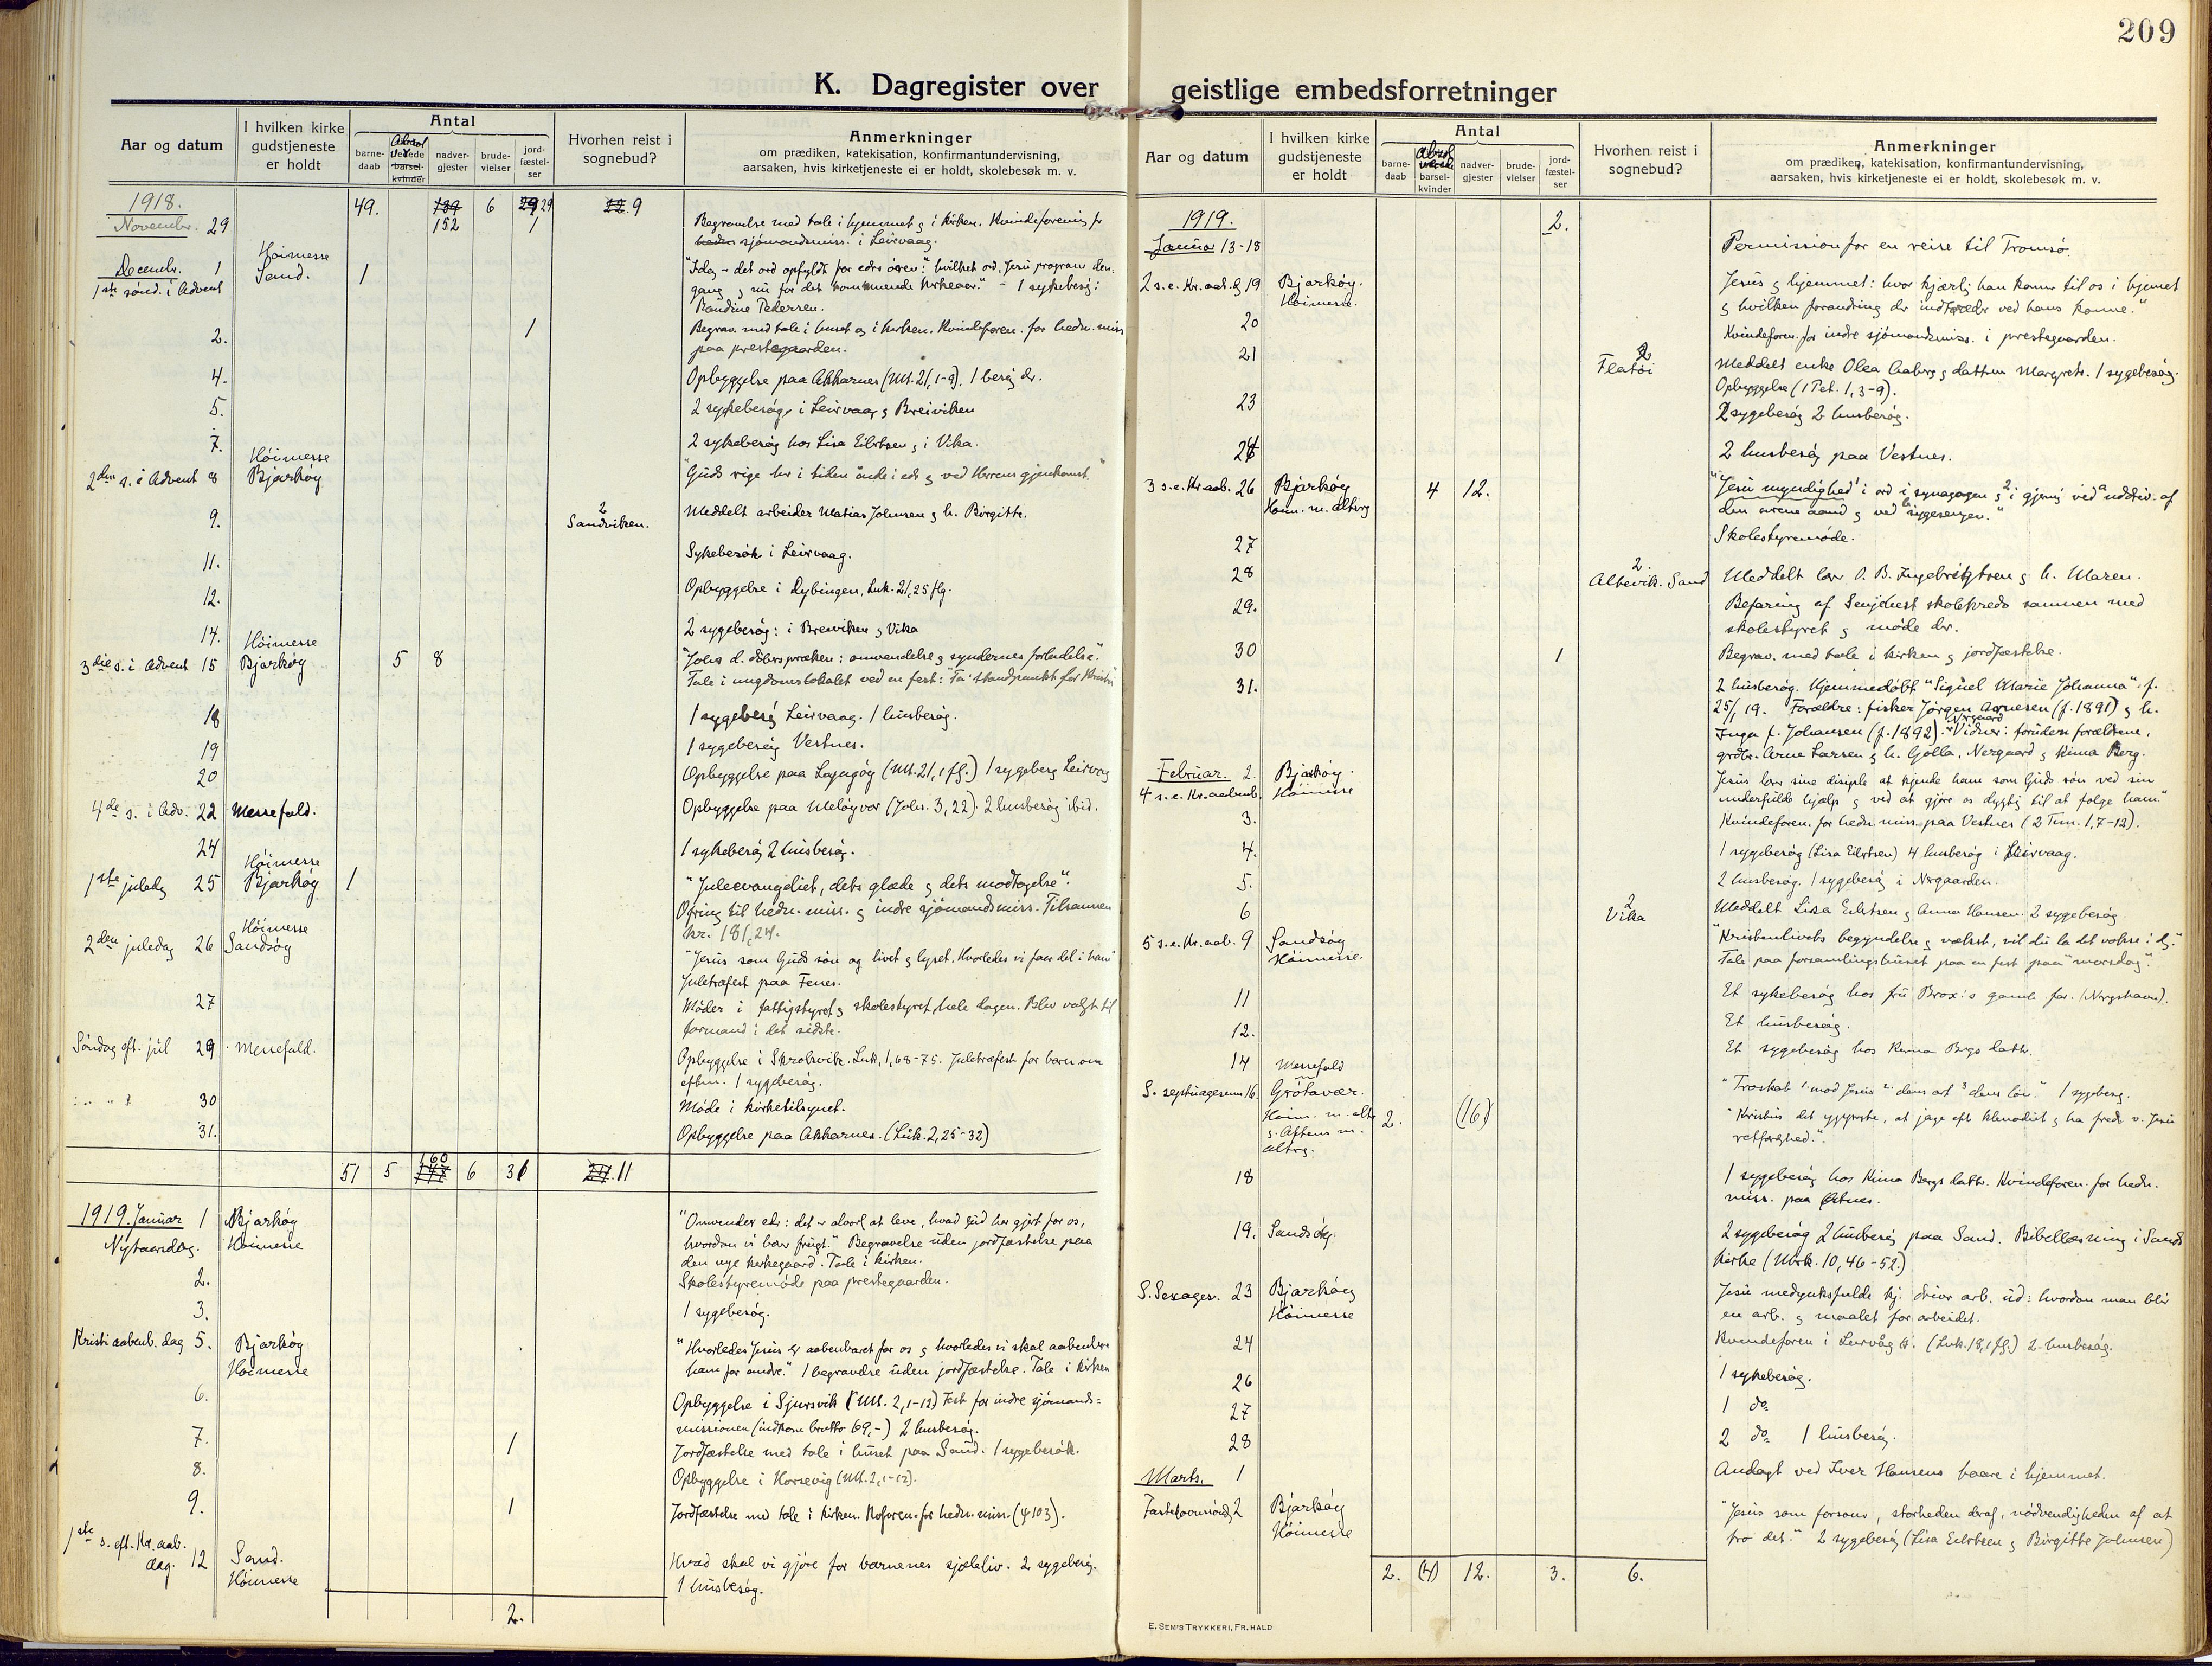 209
K. Dagregister over geistlige embedsforretninger
Aar og datum
I hvilken kirke gudstjeneste er holdt
Antal
barne-daab
nadver-gjester
brude-vielser
jord-fæstel-ser
Hvorhen reist i sognebud?
Anmerkninger
om prædiken, katekisation, konfirmantundervisning,
aarsaken, hvis kirketjeneste ei er holdt, skolebesøk m. v.
1918. 49. 139 6 29 29 22.9
Novembr. 29 152 1 Begravelse med tale i hjemmet og i kirken. Kvindeforening for
sjømandsmiss. i Leirvaag.
Decembr. 1 Høimesse Sand. 1 "Idag er det ord opfyldt for edrs ører": hvilket ord, Jesu program den-
1ste sønd. i Advent gang og nu for det kommende kirkeaar." - 1 sykebesøg:
Randine Pedersen.
2. 1 Begrav. med tale i huset og i kirken. Kvindeforen. for hedn. miss
paa prestegaarden.
4. Opbyggelse paa Akkarnes (Mt. 21, 1-9). 1 besøg dr.
5. 2 sykebesøg i Leirvaag og Breiviken
7. 2 sykebesøg hos Lisa Eilertsen og i Vika.
2den s. i Advent 8 Høimesse Bjarkøy "Guds rige her i tiden inde i eder og ved Herrens gjenkomst."
9. 2 Sandviken. Meddelt arbeider Matias Johnsen og h. Birgitte.
11. Sykebesøk i Leirvaag.
12. Opbyggelse i Dybingen, Luk. 21, 25 flg.
14. 2 sygebesøg: i Breiviken og Vika
3die s. i Advent 15 Høimesse Bjarkøy 5 8 "Johs d. døbers præken: omvendelse og syndernes forladelse."
Tale i ungdomslokalet ved en fest: "Ta standpunkt for Kristus"
18 1 sygebesøg Leirvaag. 1 husbesøg.
19 1 sygebesøg Vestnes.
20 Opbyggelse paa (Mt. 21, 1 flg.) 1 sygebesøg Leirvaag
4de s. i Adv. 22 Messefald. Opbyggelse paa Meløyvær (Johs. 3, 22). 2 husbesøg ibid.
24 1 sykebesøg 2 husbesøg.
1ste juledag 25 Høimesse Bjarkøy 1 "Juleevangeliet, dets glæde og dets modtagelse".
Ofring til hedn. miss. og indre sjømandsmiss. Tilsammen
kr. 181,24.
2den juledag 26 Høimesse Sandsøy "Jesus som Guds søn og livet og lyset. Hvorledes vi faar del i ham"
Juletræfest paa Fenes.
27 Møder i fattigstyret og skolestyret, hele dagen. Blev valgt til
formand i det sidste.
Søndag eft. jul 29 Messefald. Opbyggelse i Skrolsvik. Luk. 1, 68-75. Juletræfest for barn om
eftm. 1 sygebesøg.
30 Møde i kirketilsynet.
31. Opbyggelse paa Akkarnes. (Luk. 2, 25-32)
51 5 160 6 31 11
1919. Januar 1 Bjarkøy "Omvender eder: det er alvorl. at leve, hvad Gud har gjort for os,
Nytaarsdag. Høimesse hvordan vi bær frugt." Begravelse uden jordfæstelse paa
den nye kirkegaard. Tale i kirken.
2. Skolestyremøde paa prestegaarden.
3. 1 sygebesøg.
Kristi aabenb. dag 5. Bjarkøy "Hvorledes Jesus er aabenbaret for os og hvorledes vi skal aabenbare
Høimesse ham for andre." 1 begravelse uden jordfæstelse. Tale i kirken
6. Opbyggelse i Sjursvik (Mt. 2, 1-12) Fest for indre sjømands-
missionen (indkom brutto 69,-) 2 husbesøg.
7. 1 Jordfæstelse med tale i huset paa Sand. 1 sygebesøk.
8. Opbyggelse i Horsevig (Mt. 2, 1-12).
9. 1 Jordfæstelse med tale i kirken. Kvforen. for hedn. miss. (ψ 103).
1ste s. eft. Kr. aab. dag. 12 Sand. Høimesse Hvad skal vi gjøre for barnenes sjæleliv. 2 sygebesøg.
1 husbesøg.
2.
Aar og datum
I hvilken kirke gudstjeneste er holdt
Antal
barne-daab
barsel-kvinder
nadver-gjester
brude-vielser
jord-fæstel-ser
Hvorhen reist i sognebud?
Anmerkninger
om prædiken, katekisation, konfirmantundervisning,
aarsaken, hvis kirketjeneste ei er holdt, skolebesøk m. v.
1919. 2.
Januar 13-18 Permission for en reise til Tromsø
2 s. e. Kr. aab. d. 19 Bjarkøy. Jesus og hjemmet: hvor kjærlig han kom til os i hjemet
Høimesse. og hvilken forandring der indtræder ved hans komme."
20 Kvindeforen. for indre sjømandsmiss. i prestegaarden.
21 2 Flatøi Meddelt enke Olea Aaberg og datteren Margrete. 1 sygebesøg.
Opbyggelse (1 Pet. 1, 3-9).
23 2 sygebesøg 2 husbesøg.
24 2 husbesøg paa Vestnes.
3 s. e. Kr. aab. 26 Bjarkøy 4 12. "Jesu myndighed 1 i ord i synagogen og 2 i gjerning ved a uddriv. af
Høim. m. alterg den urene aand og ved b sygesengen."
27 Skolestyremøde.
28 2. Altevik. Sand Meddelt lær O. B. Ingebrigtsen og h. Maren.
29. Befaring af Senjehest skolekreds sammen med
skolestyret og møde der.
30 1 Begrav. med tale i kirken og jordfæstelse.
31. 2 husbesøg. Hjemmedøbt "Signel Marie Johanna" f.
25/1 19. Forældre: fisker Jørgen Arnesen (f. 1891) og h.
Inga f. Johansen (f. 1892). Nergaard Vidner: foruden forældrene,
grdbr. Arne Larsen og h. Golla, Nergaard og Kima Berg.
Februar. 2. Bjarkøy. Jesus lær sine disiple at kjende ham som Guds søn ved sin
4 s. e. Kr. aabenb. Høimesse underfulde hjælp og ved at gjøre os dygtig til at følge ham"
3. Kvindeforen. for hedn. miss. paa Vestnes (2 Tim. 1, 7-12).
4. 1 sygebesøg (Lisa Eilertsen) 4 husbesøg i Leirvaag.
5. 2 husbesøg. 1 sygebesøg i Nergaarden.
6 2 Vika Meddelt Lisa Eilertsen og Anna Hansen. 2 sygebesøg
5 s. e. Kr. aab. 9 Sandsøy "Kristenlivets begyndelse og vækst, vil du la det vokse i dig."
Høimesse. Tale paa forsamlingshuset paa en fest paa "morsdag".
11 Et sykebesøg hos fru Brox's gamle far. (Nergshavn).
12. Et husbesøg.
14 Et sygebesøg hos Kima Bergs datter.
S. septuagesima 16. Messefald Grøtavær. "Troskab 1. mod Jesus 2. dens art 3 dens løn." 1 sygebesøg.
Høim. m. altg 2. (16) "Kristus det ypperste, at jage eft. klenodiet og ha fred v. Jesu
og Aftens m. altrg. retfærdighed."
18 1 sygebesøg hos Kima Bergs datter. Kvindeforen. for hedn.
miss. paa Østnes.
19. Sandsøy. 2 sygebesøg 2 husbesøg paa Sand. Bibellæsning i Sands
kirke (Mrk. 10, 46-52.)
S. Sexages. 23 Bjarkøy Jesu medynksfulde hj. driver arb. ud: hvordan man blir
Høimesse en arb. og maalet for arbeidet.
24 Kvindeforen i Leirvåg (Luk. 18, 1 flg.) 2 husbesøg.
26 1 sykebesøg.
27 1 do
28 2 do 1 husbesøg.
Marts. 1 Andagt ved Iver Hansens baare i hjemmet.
Fastelavnssønd. 2 Bjarkøy "Jesus som forsoner, storheden deraf, nødvendigheden af at
Høimesse tro det." 2 sygebesøg (Lisa Eilertsen og Birgitte Johnsen)
2. (4) 12. 3. 6.
E. SEM'S TRYKKERI, FR.HALD